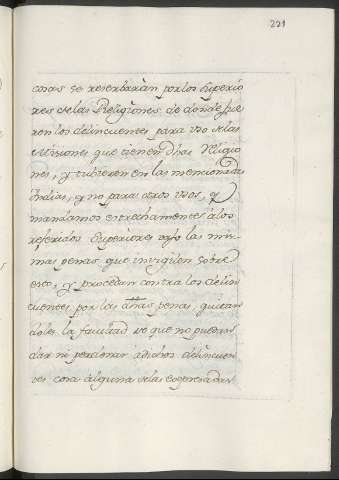 221
cosas se reserbaràn por los Superio
res de las Religiones de donde fue
ren los delincuentes para uso de las
Misiones que tienen dhas Religio
nes, y tubieren en las mencionadas
Indias, y no para otros usos, y
mandamos estrechamente à los
referidos Superiores vajo las mis
mas penas que invigilen sobre
esto, y procedan contra los delin
cuentes por las dhas penas, quitan
doles la facultad de que no puedan
dar ni perdonar à dichos delincuen
tes cosa alguna de las expresadas